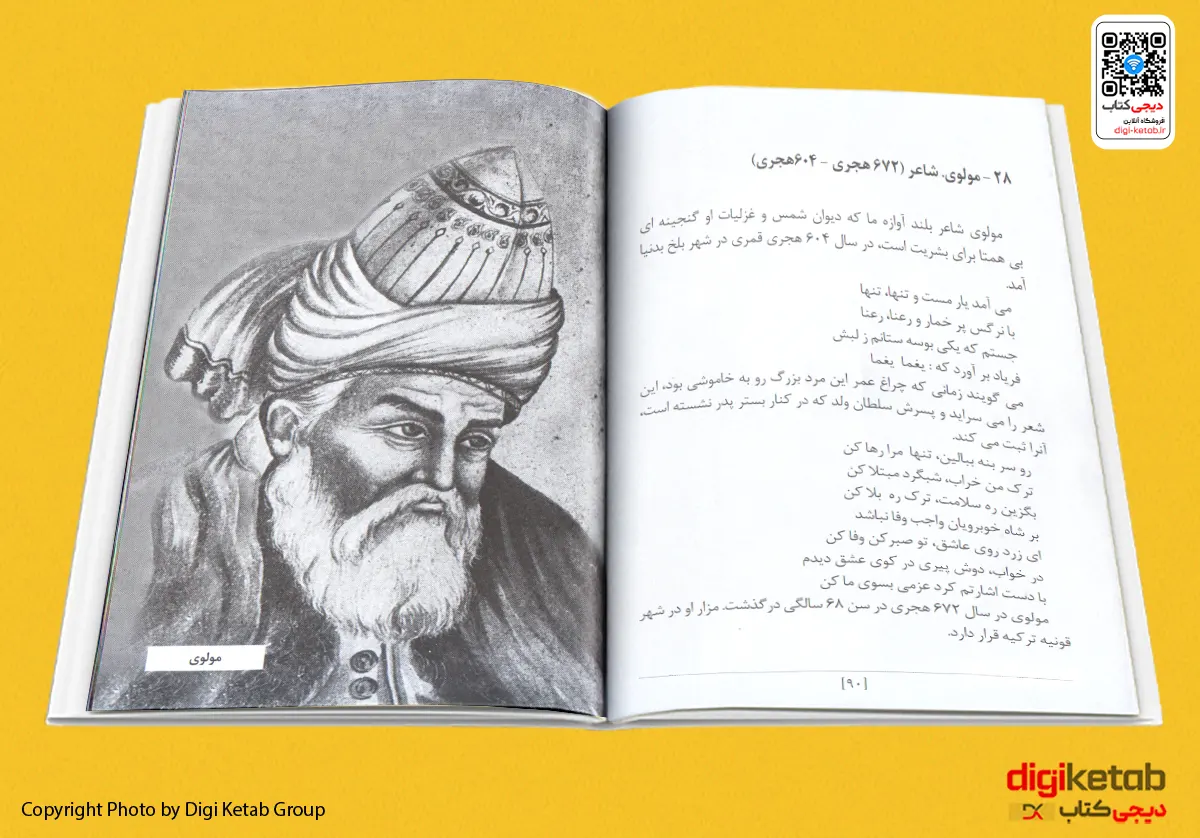 دیجی‌کتاب
فروشگاه آنلاین
digi-ketab.ir
۲۸ - مولوی. شاعر (۶۷۲ هجری - ۶۰۴هجری)
مولوی شاعر بلند آوازه ما که دیوان شمس و غزلیات او گنجینه ای
بی همتا برای بشریت است، در سال ۶۰۴ هجری قمری در شهر بلخ بدنیا
آمد.
می آمد یار مست و تنها، تنها
با نرگس پر خمار و رعنا، رعنا
جستم که یکی بوسه ستانم ز لبش
فریاد بر آورد که : یغما یغما
می گویند زمانی که چراغ عمر این مرد بزرگ رو به خاموشی بود، این
شعر را می سراید و پسرش سلطان ولد که در کنار بستر پدر نشسته است،
آنرا ثبت می کند.
رو سر بنه ببالین، تنها مرا رها کن
ترک من خراب، شبگرد مبتلا کن
بگزین ره سلامت، ترک ره بلا کن
بر شاه خوبرویان واجب وفا نباشد
ای زرد روی عاشق، تو صبر کن وفا کن
در خواب، دوش پیری در کوی عشق دیدم
با دست اشارتم کرد عزمی بسوی ما کن
مولوی در سال ۶۷۲ هجری در سن ۶۸ سالگی درگذشت. مزار او در شهر
قونیه ترکیه قرار دارد.
[۹۰]
مولوی
digiketab
دیجی کتاب
DK
Copyright Photo by Digi Ketab Group